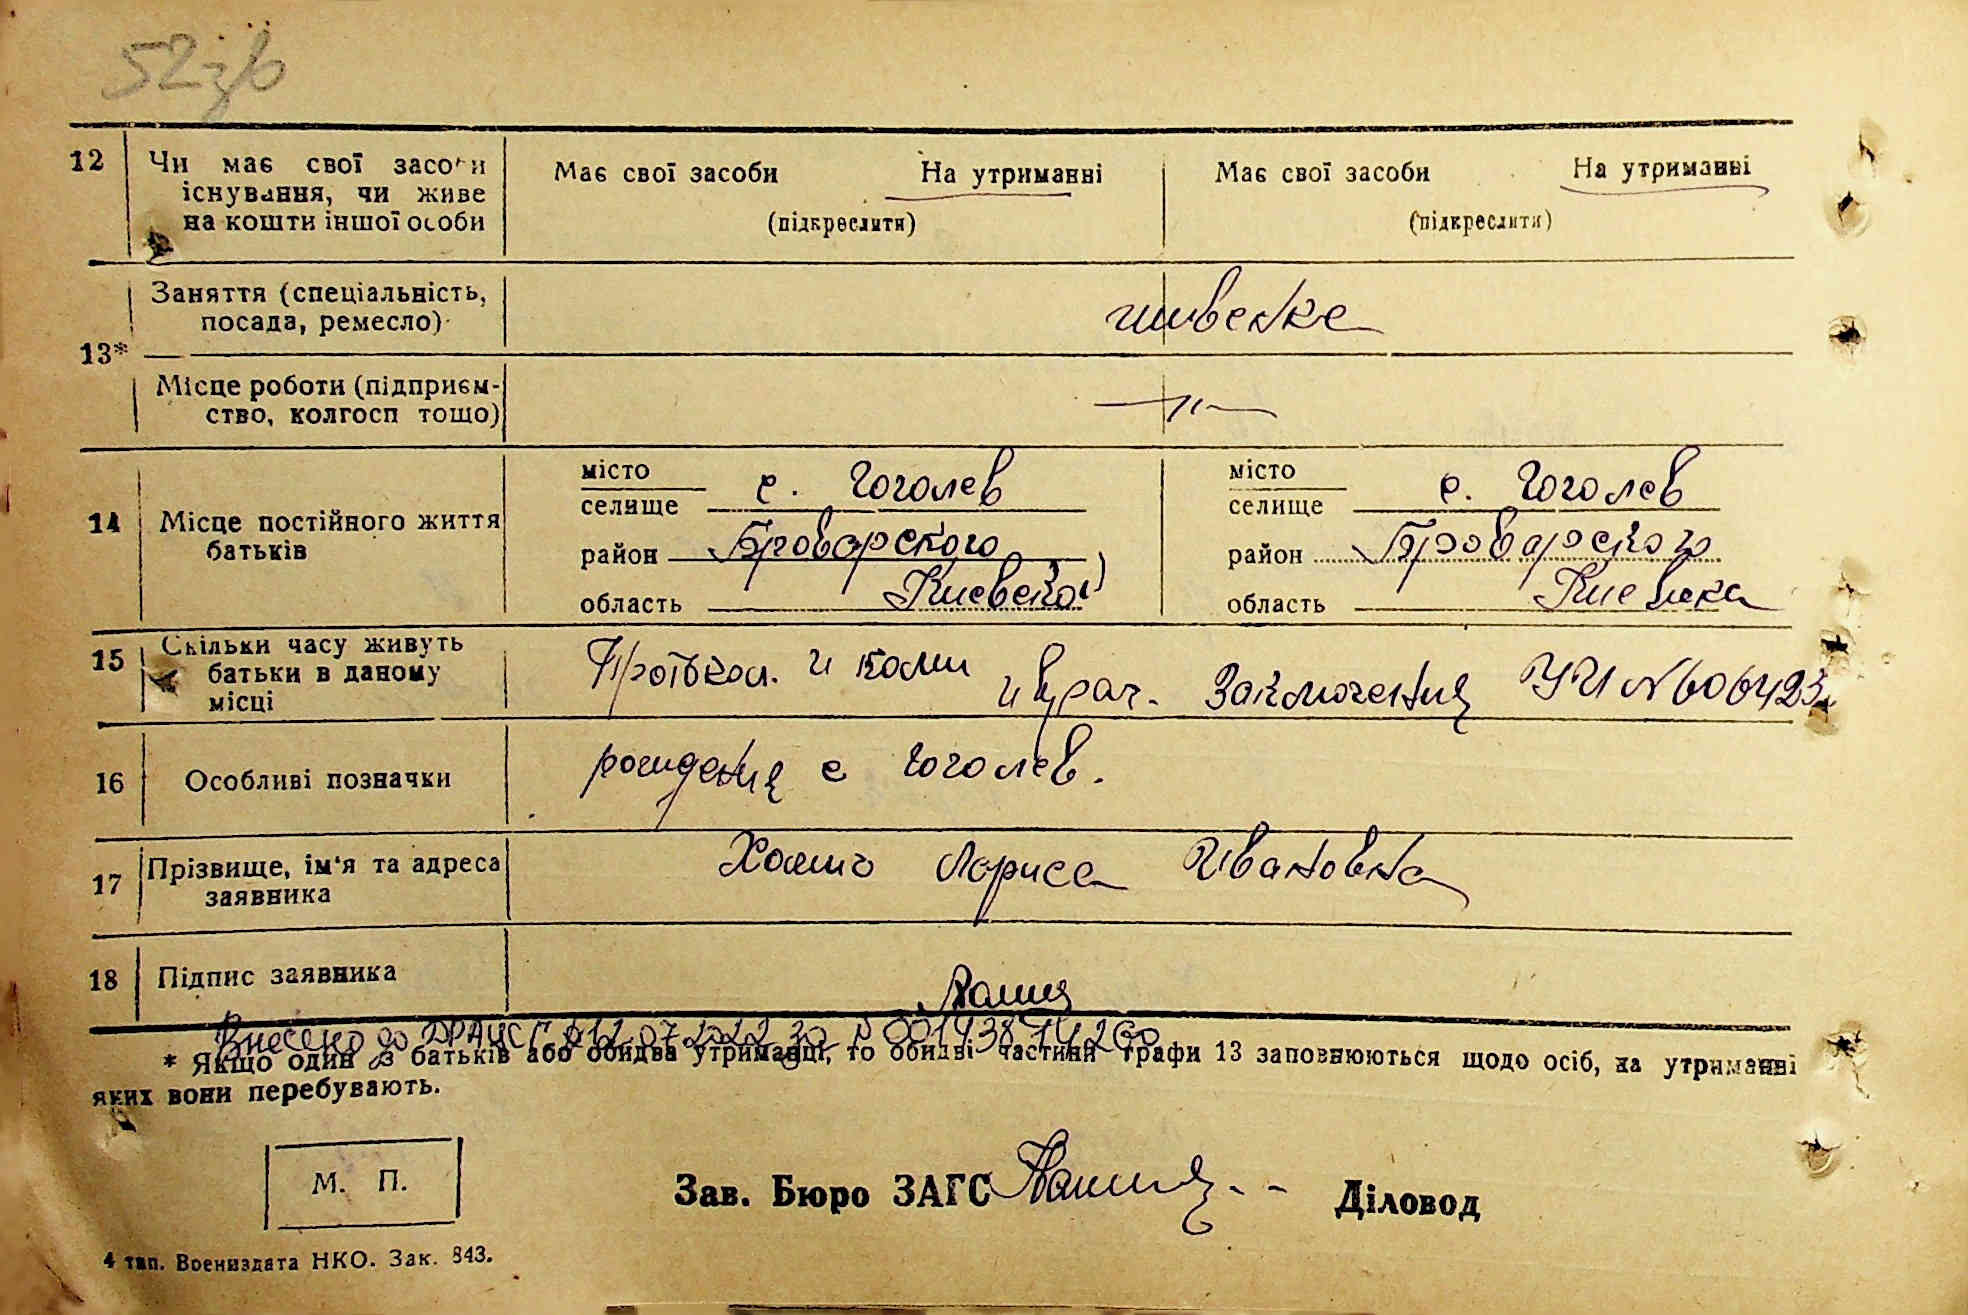 52зв
12 Чи має свої засоби Має свої засоби На утриманні Має свої засоби На утриманні
існування, чи живе
на кошти іншої особи (підкреслити) (підкреслити)
Заняття (спеціальність,
посада, ремесло)
13*
Місце роботи (підприєм-
ство, колгосп тощо)
місто с. Гоголев місто с. Гоголев
селище селище
14 Місце постійного життя
батьків
район Броварского район Броварского
область Киевской область
15 Скільки часу живуть
батьки в даному
місці
и врач. Заключения
16 Особливі позначки рождения с Гоголев.
17 Прізвище, ім'я та адреса Лариса Ивановна
заявника
18 Підпис заявника
Внесено до ДРАЦСГ 12.07.2022 за № 00143814260
* Якщо один з батьків або обидва утриманці, то обидві частини графи 13 заповнюються щодо осіб, на утриманні
яких вони перебувають.
М. П.
Зав. Бюро ЗАГС Діловод
4 тип. Воениздата НКО. Зак. 843.